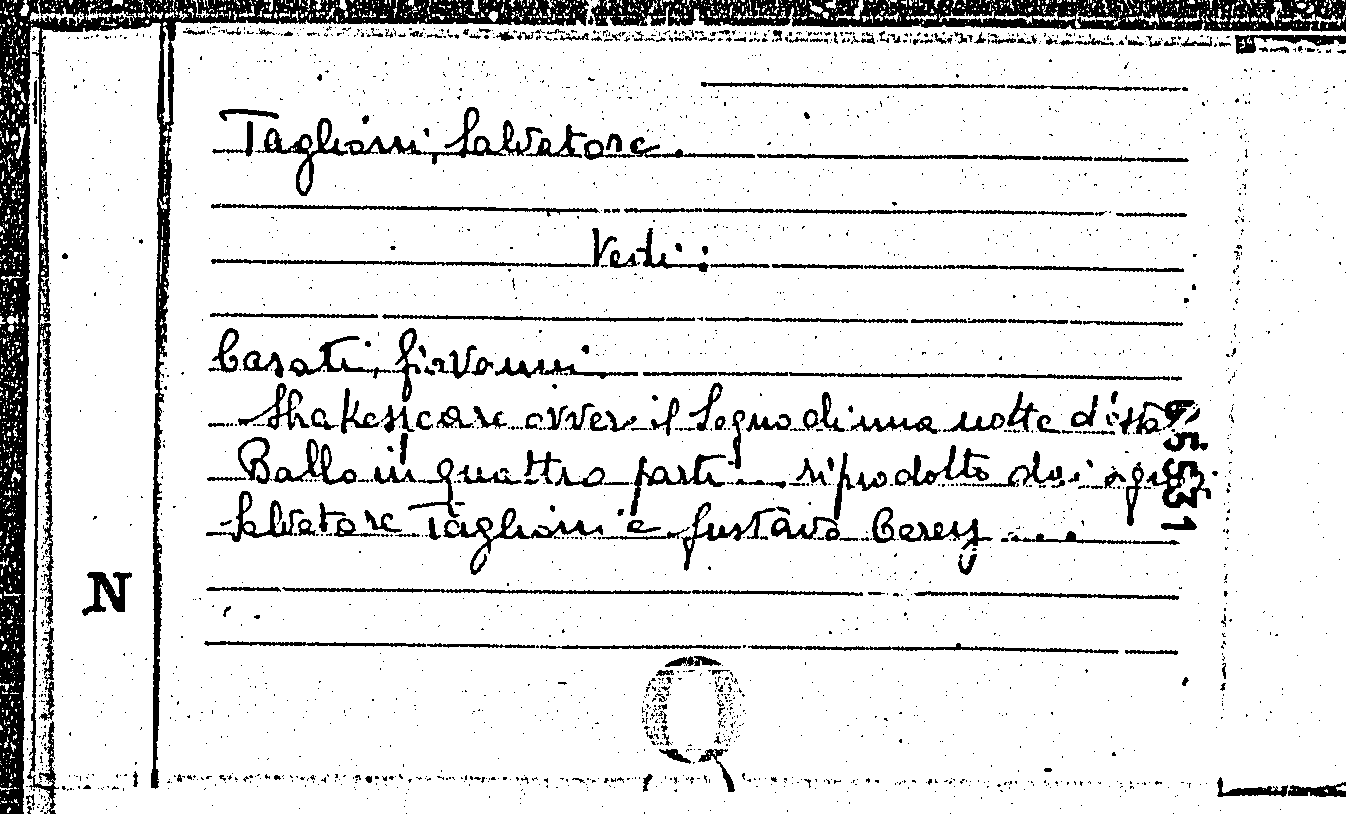 Taglioni, Salvatore.
Vedi:
Casati, Giovanni.
Shakespeare ovver il Sogno di una notte d'estate
Ballo in quattro parti ... riprodotto dai signori
Salvatore Taglioni e Gustavo Carey ...
N
95531